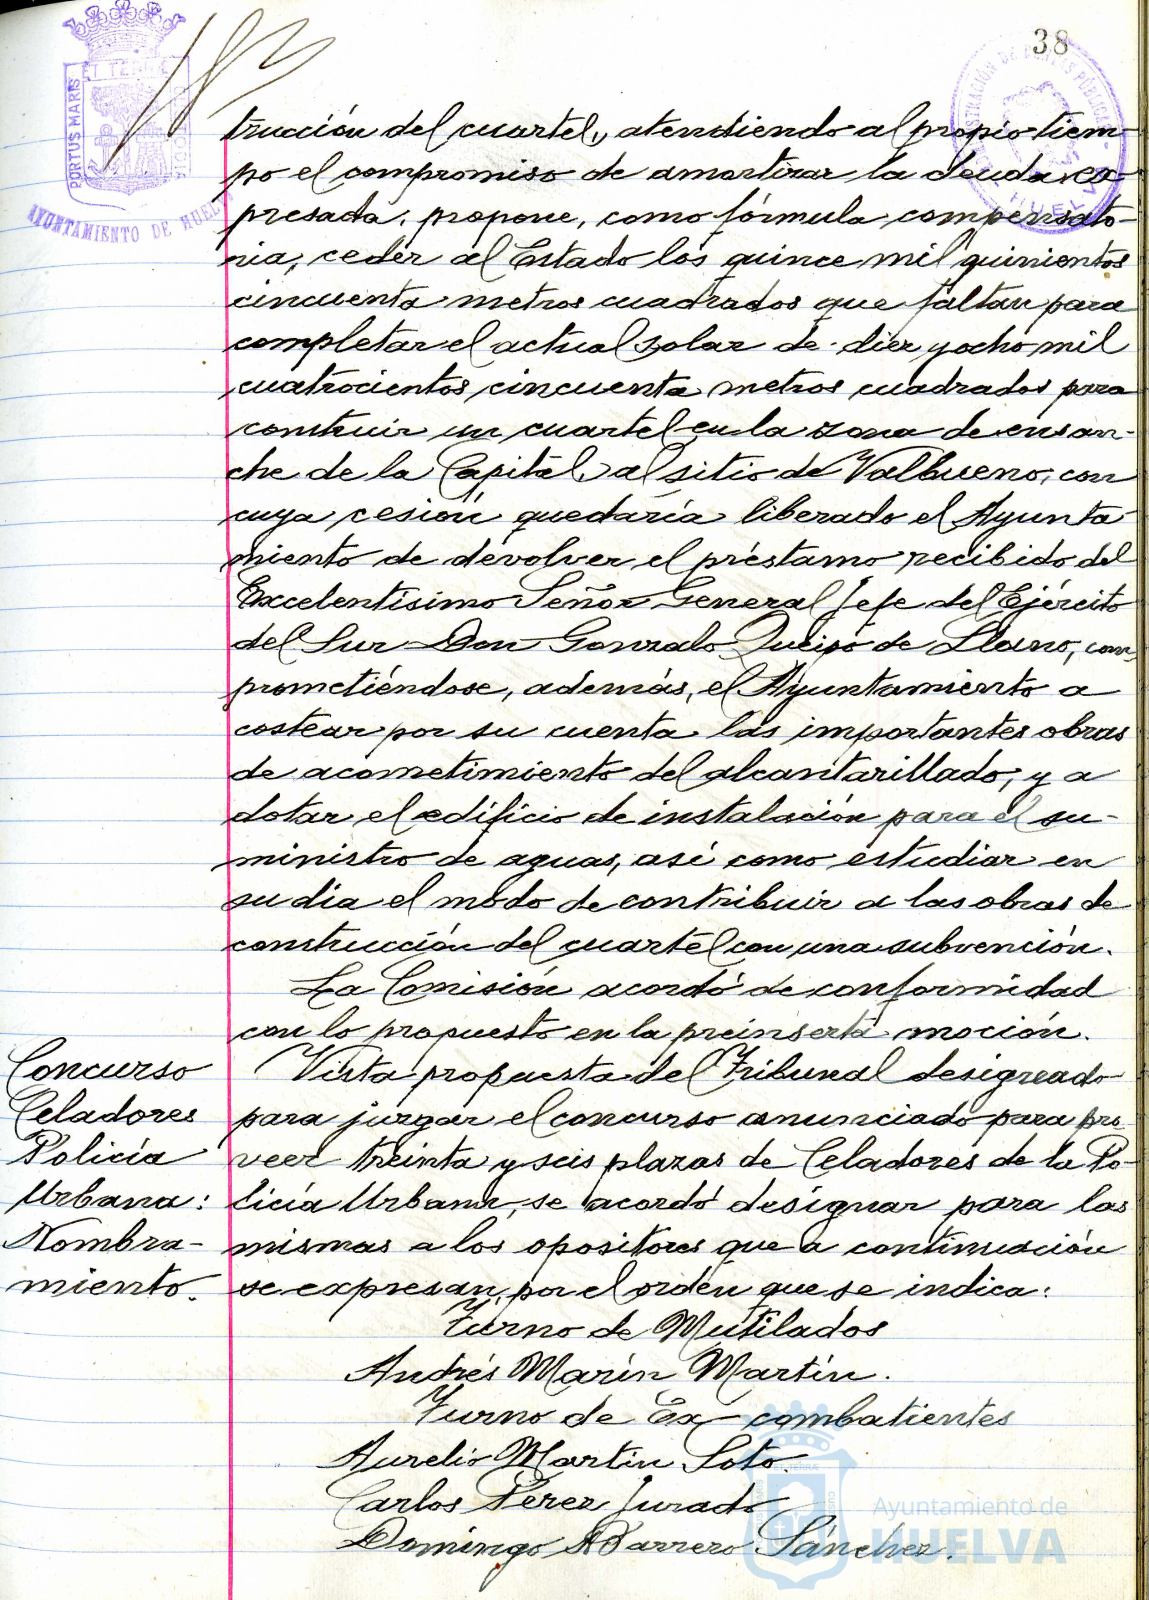 38
PORTUS MARIS
ET TERRE
AYUNTAMIENTO DE HUEL
trucción del cuartel, atendiendo al propio tiem-
po el compromiso de amortizar la deuda ex-
presada, propone, como fórmula compensato-
ria, ceder al Estado los quince mil quinientos
cincuenta metros cuadrados que faltan para
completar el actual solar de diez y ocho mil
cuatrocientos cincuenta metros cuadrados para
construir un cuartel en la zona de ensan-
che de la Capital, al sitio de Valbueno, con
cuya cesión quedaría liberado el Ayunta-
miento de devolver el préstamo recibido del
Excelentísimo Señor General Jefe del Ejército
del Sur Don Gonzalo Queipo de Llano, com-
prometiéndose, además, el Ayuntamiento a
costear por su cuenta las importantes obras
de acometimiento del alcantarillado, y a
dotar el edificio de instalación para el su-
ministro de aguas, así como estudiar en
su dia el modo de contribuir a las obras de
construcción del cuartel con una subvención.
La Comisión acordó de conformidad
con lo propuesto en la preinserta moción.
Concurso
Celadores
Policía
Urbana:
Nombra-
miento.
Vista propuesta del Tribunal designado
para juzgar el concurso anunciado para pro
veer treinta y seis plazas de Celadores de la Po-
licía Urbana, se acordó designar para las
mismas a los opositores que a continuación
se expresan, por el orden que se indica:
Turno de Mutilados
Andrés Marín Martín.
Turno de Ex-combatientes
Aurelio Martín Soto.
Carlos Pérez Jurado
Domingo Barrero Sánchez.
Ayuntamiento de
HUELVA